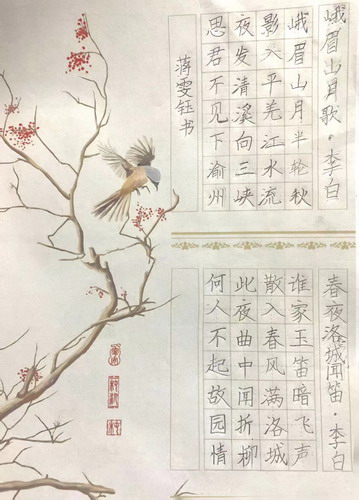 峨眉山月歌·李白
峨眉山月半轮秋
影入平羌江水流
夜发清溪向三峡
思君不见下渝州
蒋雯钰书
春夜洛城闻笛·李白
谁家玉笛暗飞声
散入春风满洛城
此夜曲中闻折柳
何人不起故园情